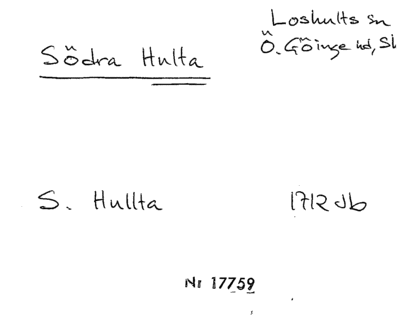 Loshults sn
Södra Hulta
Ö. Göinge hd, Sk
S. Hullta 1712 Jb
Nr 17759